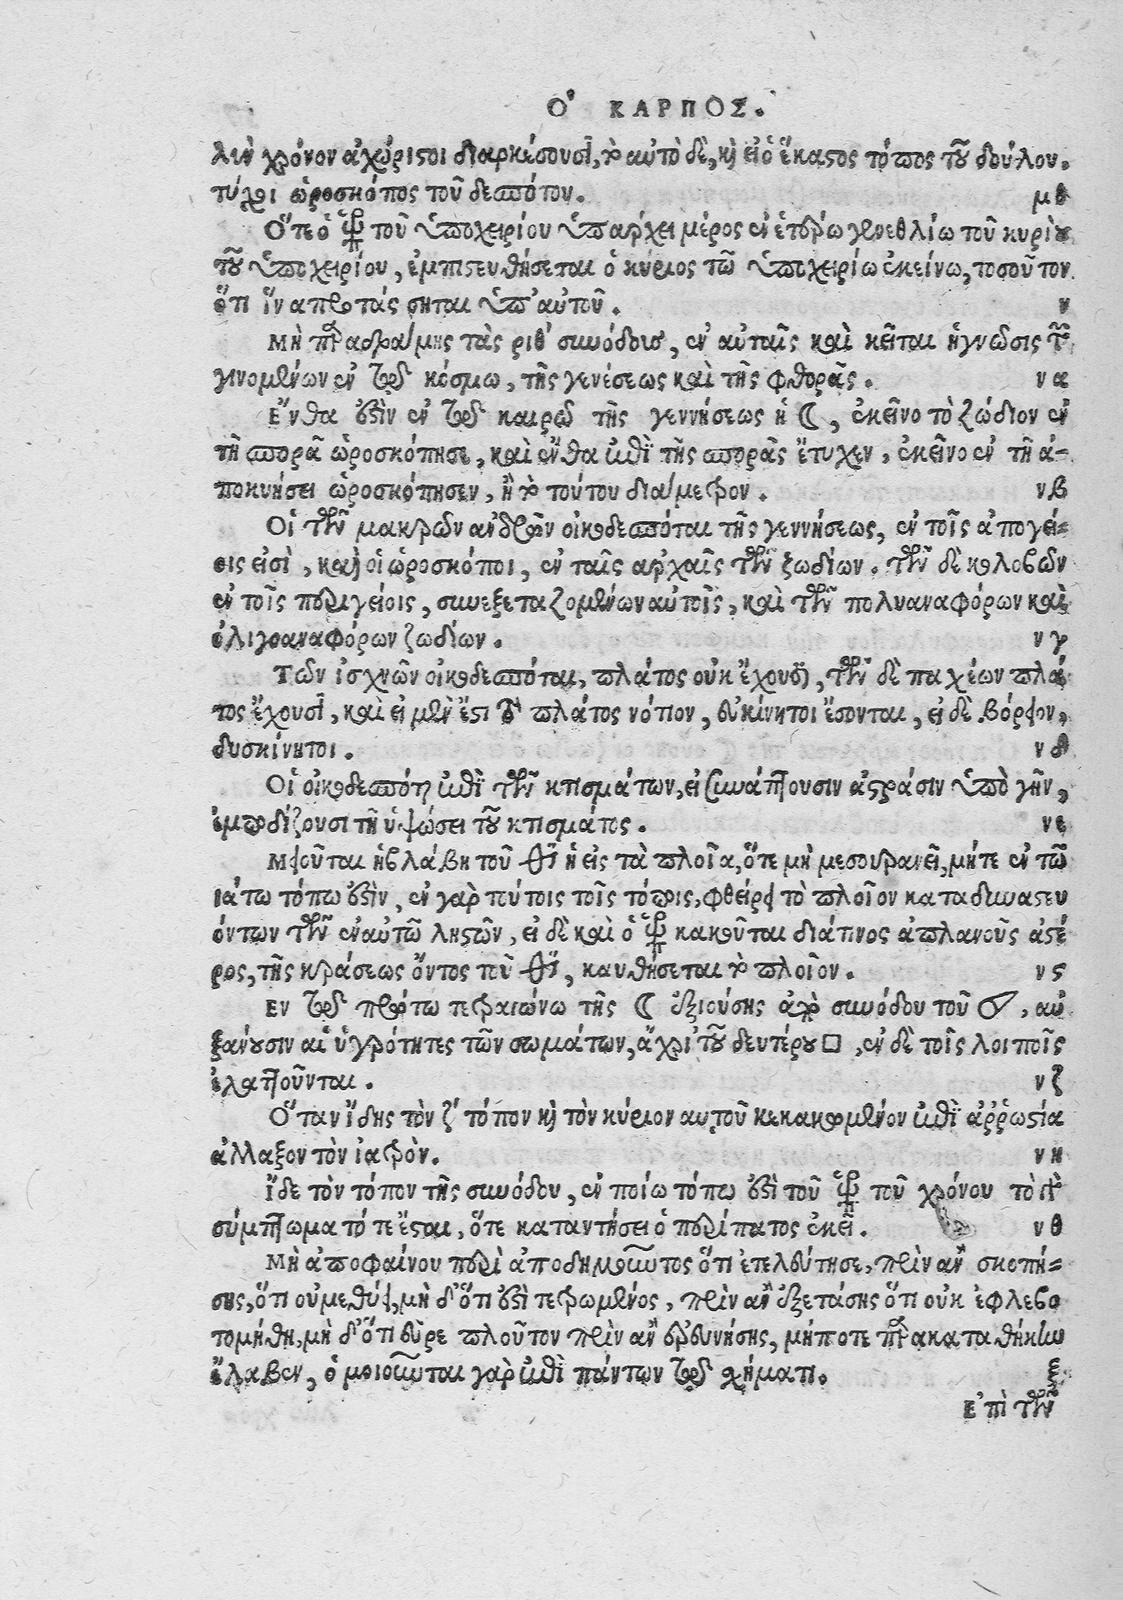 Ο῾ ΚΑΡΠΟΣ.
λιὼ χρόνον ἀχώριστοι διαρκέσουσῖ, τὸ αὐτὸ δὲ, κὴ εἰ ὁ ἕκαστος τόπος τοῦ δούλου.
τύχῃ ὡροσκόπος τοῦ δεσπότου. μθ
Ὅτε ὁ ☿ τοῦ ὑποχειρίου ὑπάρχει μέρος ἐν ἑτέρῳ γενεθλίῳ τοῦ κυρίου
τοῦ ὑποχειρίου, ἐμπιστευθήσεται ὁ κύριος τῶ ὑποχειρίω ἐκείνω, τοσοῦτον
ὅτι ἵν ἀποτάσσηται ὑπ' αὐτοῦ. ν
Μὴ παραδράμῃς τὰς ριθ συνόδους, ἐν αὐταῖς καὶ κεῖται ἡ γνῶσις τῶν
γινομένων ἐν τῷ κόσμω, τῆς γενέσεως καὶ τῆς φθορᾶς. να
Ἔνθα ἐστὶν ἐν τῷ καιρῷ τῆς γεννήσεως ἡ ☾, ἐκεῖνο τὸ ζώδιον ἐν
τῆ σπορᾶ ὡροσκόπησε, καὶ ἔνθα ἐπὶ τῆς σπορᾶς ἔτυχεν, ἐκεῖνο ἐν τῆ ἀ-
ποκυήσει ὡροσκόπησεν, ἢ τὸ τούτου διάμετρον. νβ
Οἱ τῶν μακρῶν ἀνδρῶν οἰκοδεσπόται τῆς γεννήσεως, ἐν τοῖς ἀπογεί-
οις εἰσὶ, καὶ οἱ ὡροσκόποι, ἐν ταῖς ἀρχαῖς τῶν ζωδίων. τῶν δὲ κολοβῶν
ἐν τοῖς περιγείοις, συνεξεταζομένων αὐτοῖς, καὶ τῶν πολυαναφόρων καὶ
ὀλιγοαναφόρων ζωδίων. νγ
Τῶν ἰσχνῶν οἰκοδεσπόται, πλάτος οὐκ ἔχουσι, τῶν δὲ παχέων πλά
τος ἔχουσῖ, καὶ εἰ μὲν ἔστι τὸ πλάτος νότιον, εὐκίνητοι ἔσονται, εἰ δὲ βόρειον,
δυσκίνητοι. νδ
Οἱ οἰκοδεσπόται ἐπὶ τῶν κτισμάτων, εἰ συνάπτουσιν ἀστράσιν ὑπὸ γῆν,
ἐμποδίζουσι τῆ ὑψώσει τοῦ κτισμάτος. νε
Μειοῦται ἡ βλάβη τοῦ ♂ ἡ εἰς τὰ πλοῖα, ὅτε μὴ μεσουρανεῖ, μήτε ἐν τῶ
ιάτω τόπω ἐστὶν, ἐν γὰρ τούτοις τοῖς τόποις, φθείρει τὸ πλοῖον καταδυναστευ
όντων τῶν ἐν αὐτῶ ληστῶν, εἰ δὲ καὶ ὁ ☿ κακοῦται διά τινος ἀπλανοῦς ἀστέ
ρος, τῆς κράσεως ὄντος τοῦ ♂, καυθήσεται τὸ πλοῖον. νϛ
Εν τῷ πρώτω τετραγώνω τῆς ☾ ἐξιούσης ἀπὸ συνόδου τοῦ ☌, αὐ
ξάνουσιν αἱ ὑγρότητες τῶν σωμάτων, ἄχρι τοῦ δευτέρου □, ἐν δὲ τοῖς λοιποῖς
ἐλαττοῦνται. νζ
Ὅταν ἴδῃς τὸν ζ τόπον κὴ τὸν κύριον αὐτοῦ κεκακωμένον ἐπὶ ἀῤῥωστία
ἄλλαξον τὸν ἰατρὸν. νη
Ἴδε τὸν τόπον τῆς συνόδου, ἐν ποίω τόπω ἐστὶ τοῦ ☿ τοῦ χρόνου τὸ γὰρ
σύμπτωμα τότε ἔσται, ὅτε καταντήσει ὁ περίπατος ἐκεῖ. νθ
Μὴ ἀποφαίνου περὶ ἀποδημοῦντος ὅτι ἐτελεύτησε, πρὶν ἂν σκοπή-
σῃς, ὅτι οὐ μεθύει, μὴ δ' ὅτι ἐστὶ τετρωμένος, πρὶν ἂν ἐξετάσῃς ὅτι οὐκ ἐφλεβο
τομήθη, μὴ δ' ὅτι εὗρε πλοῦτον πρὶν ἂν ἐρευνήσῃς, μήποτε παρακαταθήκην
ἔλαβεν, ὁμοιοῦται γὰρ ἐπὶ πάντων τῷ σχήματι. ξ
Επὶ τῶν